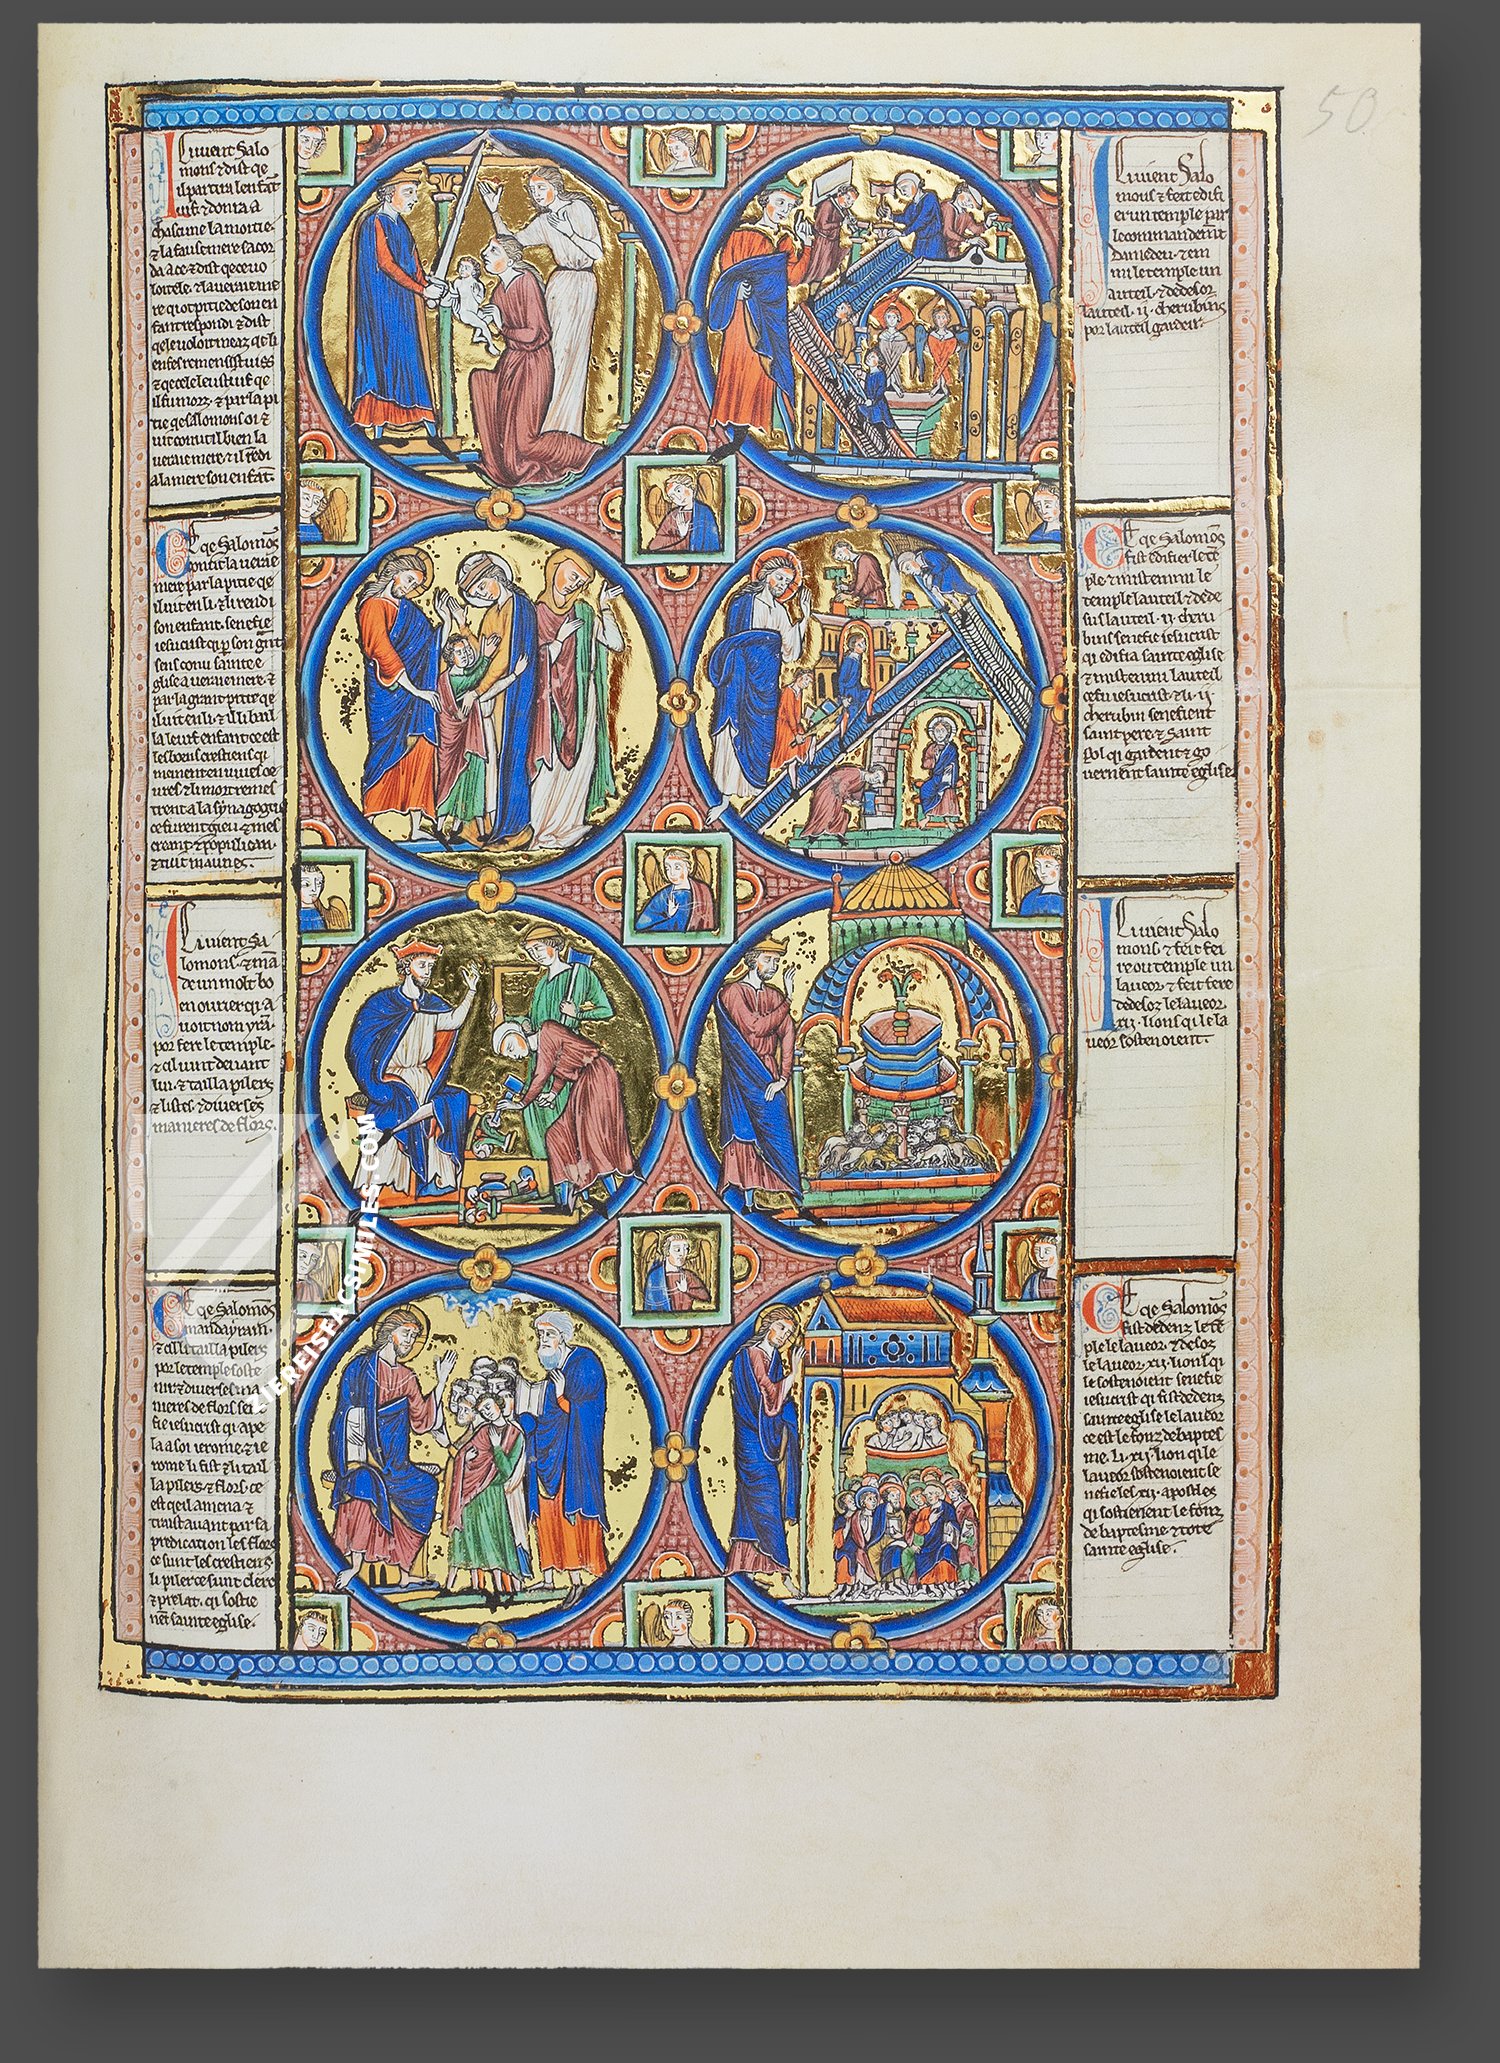 50
Ici vient Salo
mons ⁊ dist qe
il partira lenfāt
uif ⁊ donra a
chascune la moitie·
⁊ la fause mere sacor
da a ce ⁊ dist qe ce uo
loit ele· ⁊ la ueraie me
re qi ot pitie de son en
fant respondi ⁊ dist
qele uoloit meaz qe li
enfes remensist uiss
⁊ qe cele leust uif qe
il fu morz· ⁊ par la pi
tie qe salomons oi ⁊
uit conut il bien la
ueraie mere ⁊ il rēdi
a la mere son enfāt·
Ce qe Salomōs
conut la ueraie
mere par la pitie qe
il uit en li· ⁊ li rendi
son enfant· senefie
iesucrist qi
sens conu sainte e
glise a ueraie mere· ⁊
par la grant pitie qe
il uit en li· ⁊ il li bail
la le uif enfant ce est
les boens crestiens qi
mainent en uiues oe
ures ⁊ li mort remes
trent a la synagogue
ce furent gieu ⁊ mes
creanz ⁊ populican·
⁊ tuit mauues·
Ici vient Sa
lomons· ⁊ mā
de un molt bo
en ourier qi a
uoit nom yrā·
por fere le temple·
⁊ cil uint deuant
lui· ⁊ tailla pilers
⁊ listes· ⁊ diuerses
manieres de flors·
Ce qe Salomōs
manda yram·
⁊ cil li tailla pilers
por le temple soste
nir ⁊ diuerses ma
nieres de flors sene
fie iesucrist qi ape
la a soi ierome· ⁊ ie
rome li fist ⁊ li tail
la pilers ⁊ flors· ce
est qe il amena ⁊
trait auant par sa
predication les flors
ce sunt les crestiens
li piler ce sunt clerc
⁊ prelat· qi sostie
nēt sainte eglise·
Ici vient Salo
mons ⁊ fet edifi
er un temple par
le commandemēt
damedeu· ⁊ en
mi le temple un
auteil· ⁊ dedesor
lauteil· ii· cherubins
por lauteil garder·
Ce qe Salomōs
fist edifier le tē
ple ⁊ mist enmi le
temple lauteil ⁊ dede
sus lauteil· ii· cheru
bins senefie iesucrist
qi edifia sainte eglise
⁊ mist enmi lauteil
ce fu iesucrist ⁊ li· ii·
cherubin senefient
saint pere· ⁊ saint
pol qi gardent ⁊ go
uernent sainte eglise
Ici vient Salo
mons· ⁊ feit fei
re ou temple un
laueor· ⁊ feit fere
dedesoz le laueor·
xij· lions qi le la
ueor sostenoient·
Ce qe Salomōs
fist dedenz le tē
ple le laueor· ⁊ desoz
le laueor· xij· lions qi
le sostenoient senefie
iesucrist qi fist dedenz
sainte eglise le laueor
ce est le fonz de baptes
me· Li· xij· lion qi le
laueor sostenoient se
nefie les· xij· apostles
qi sostienent le fonz
de baptesme ⁊ tote
sainte eglise·
ZIEREISFACSIMILES.COM